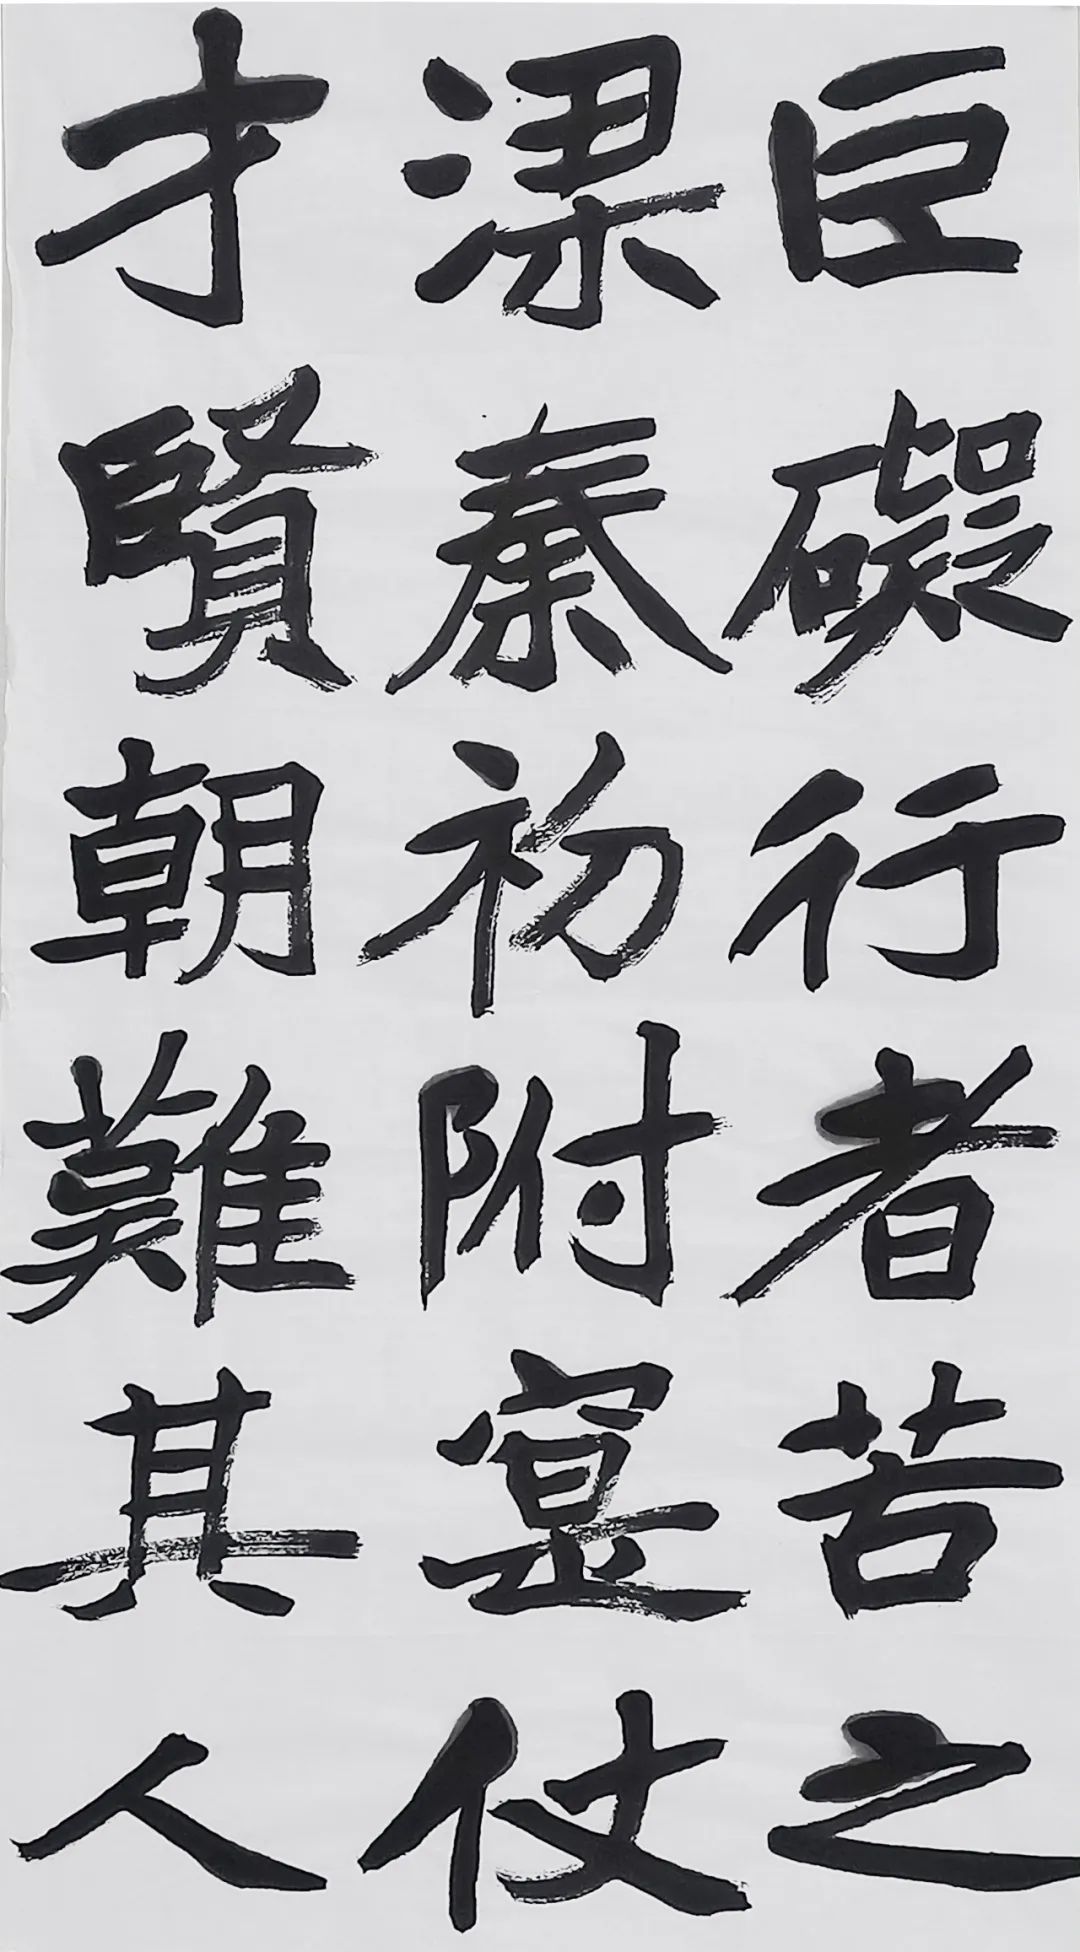 巨礙行者苦之
梁秦初附寔仗
才賢朝難其人